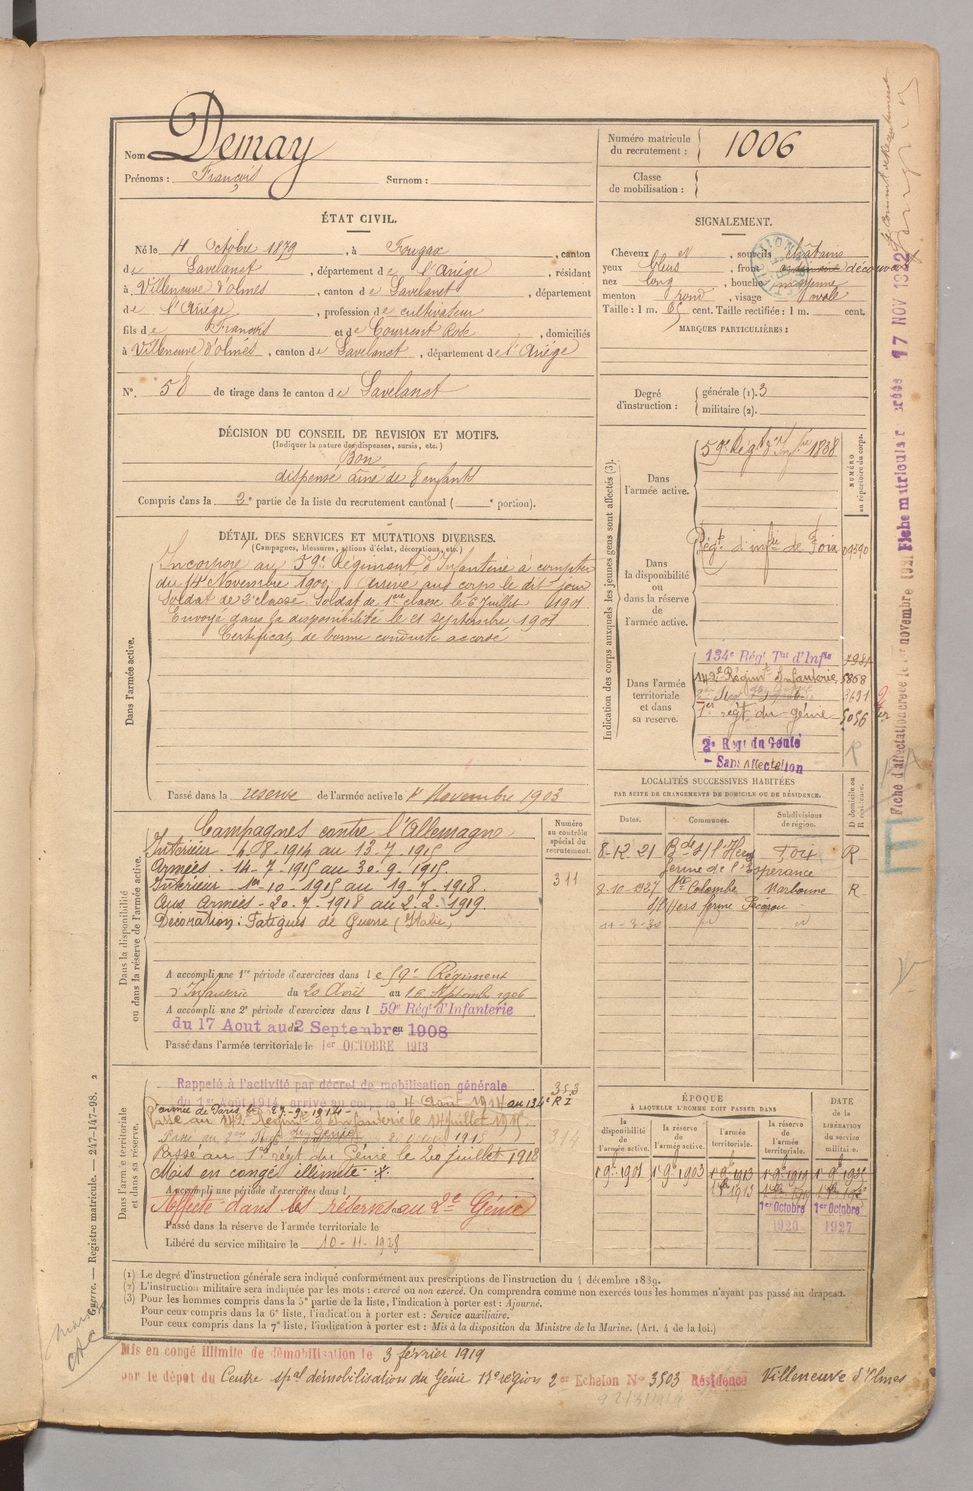 Nom Demay
Prénoms : François Surnom :
Numéro matricule du recrutement : 1006
Classe de mobilisation :
ÉTAT CIVIL.
Né le 4 Octobre 1879, à Fougax, canton
de Lavelanet, département de l'Ariége, résidant
à Villeneuve d'olmes, canton de Lavelanet, département
de l'Ariége, profession de cultivateur
fils de François et de Courrent Rose, domiciliés
à Villeneuve d'olmes, canton de Lavelanet, département de l'Ariége
N° 58 de tirage dans le canton de Lavelanet
SIGNALEMENT.
Cheveux , sourcils châtains
yeux bleus, front découvert
nez long, bouche moyenne
menton rond, visage ovale
Taille : 1 m. 65 cent. Taille rectifiée : 1 m. cent.
MARQUES PARTICULIÈRES :
Degré d'instruction : générale (1). 3
militaire (2).
DÉCISION DU CONSEIL DE REVISION ET MOTIFS.
(Indiquer la nature des dispenses, sursis, etc.)
Bon
dispensé aîné de 8 enfants
Compris dans la 2e partie de la liste du recrutement cantonal ( e portion).
DÉTAIL DES SERVICES ET MUTATIONS DIVERSES.
(Campagnes, blessures, actions d'éclat, décorations, etc.)
Dans l'armée active.
Incorporé au 59e Régiment d'Infanterie à compter
du 14 Novembre 1900, arrivé au corps le dit jour
Soldat de 2e classe. Soldat de 1ere classe le 6 Juillet 1901
Envoyé dans la disponibilité le 21 septembre 1901
Certificat de bonne conduite accordé
Passé dans la réserve de l'armée active le 1r Novembre 1903
Indication des corps auxquels les jeunes gens sont affectés (3).
NUMÉRO au répertoire du corps.
Dans l'armée active.
59e Régt d'Infrie 1838
Dans la disponibilité ou dans la réserve de l'armée active.
Régt d'infie de Foix
Dans l'armée territoriale et dans sa réserve.
134e Régt Tal d'Infie
142e Régimt d'Infanterie 5868
1er régt du génie 5056
2e Regt du Génie
- Sans affectation
LOCALITÉS SUCCESSIVES HABITÉES
PAR SUITE DE CHANGEMENTS DE DOMICILE OU DE RÉSIDENCE.
Dates. Communes. Subdivisions de région. D domicile ou R résidence.
8-12-21 Bde s/ l'Hers Foix R
ferme de l'Esperance
8-10-1927 Ste Colombe Narbonne R
s/ Hers ferme
11-3-30
Dans la disponibilité ou dans la réserve de l'armée active.
Numéro au contrôle spécial du recrutement.
311
Campagnes contre l'Allemagne
Intérieur 4-8-1914 au 13-7-1915
Armées - 14-7-1915 au 30-9-1915.
Intérieur - 1er-10-1915 au 19-7-1918.
Aux Armées - 20-7-1918 au 2-2-1919.
Décoration: Fatigues de Guerre (Italie)
A accompli une 1re période d'exercices dans le 59e Régiment
d'Infanterie du 20 Avril au 16 Septembre 1906
A accompli une 2e période d'exercices dans l 59e Régt d'Infanterie
du 17 Aout au 2 Septembre 1908
Passé dans l'armée territoriale le 1er OCTOBRE 1913
Dans l'armée territoriale et dans sa réserve.
Rappelé à l'activité par décret de mobilisation générale
du 1er Août 1914, arrivé au corps le 4 Août 1914 au 134e R I
armée de Paris le 27-9-1914
Passé au 142e Régimt d'Infanterie le 14 Juillet 1915
Passé au 1er régt du Génie le 20 juillet 1918
Mis en congé illimité
A accompli une période d'exercices dans l
Affecté dans les réserves au 2e Génie
Passé dans la réserve de l'armée territoriale le
Libéré du service militaire le 10-11-1928
353
314
ÉPOQUE
À LAQUELLE L'HOMME DOIT PASSER DANS
la disponibilité de l'armée active.
la réserve de l'armée active.
l'armée territoriale.
la réserve de l'armée territoriale.
DATE de la LIBÉRATION du service militaire.
1r 9e 1901 1r 9e 1903
1er Octobre 1920
1er Octobre 1927
(1) Le degré d'instruction générale sera indiqué conformément aux prescriptions de l'instruction du 4 décembre 1889.
(2) L'instruction militaire sera indiquée par les mots : exercé ou non exercé. On comprendra comme non exercés tous les hommes n'ayant pas passé au drapeau.
(3) Pour les hommes compris dans la 5e partie de la liste, l'indication à porter est : Ajourné.
Pour ceux compris dans la 6e liste, l'indication à porter est : Service auxiliaire.
Pour ceux compris dans la 7e liste, l'indication à porter est : Mis à la disposition du Ministre de la Marine. (Art. 4 de la loi.)
Mis en congé illimité de démobilisation le 3 février 1919
par le dépot du Centre spal démobilisation du Génie 17e région 2e Echelon No 3503 Résidence Villeneuve d'Olmes
Guerre. — Registre matricule. — 247-147-98. 2
Fiche matricule créée 17 NOV 1932